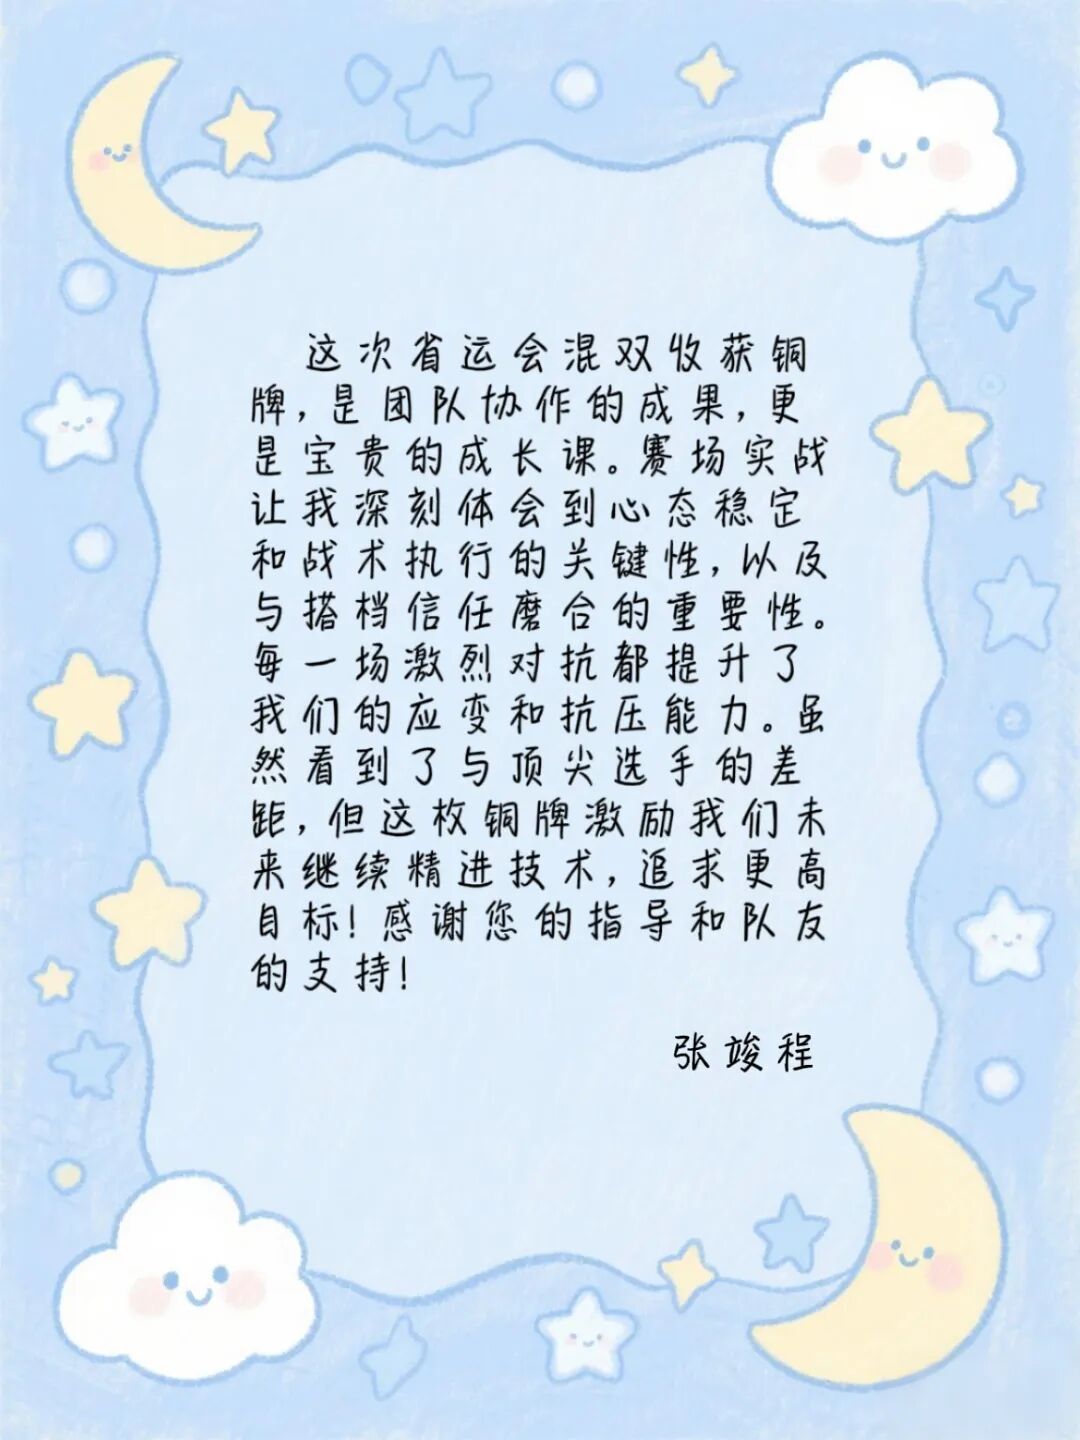 这次省运会混双收获铜
牌，是团队协作的成果，更
是宝贵的成长课。赛场实战
让我深刻体会到心态稳定
和战术执行的关键性，以及
与搭档信任磨合的重要性。
每一场激烈对抗都提升了
我们的应变和抗压能力。虽
然看到了与顶尖选手的差
距，但这枚铜牌激励我们未
来继续精进技术，追求更高
目标！感谢您的指导和队友
的支持！
张竣程